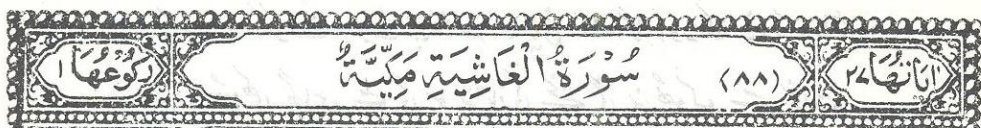 اٰيَاتُهَا ٢٧ (٨٨) سُوْرَةُ الْغَاشِيَةِ مَكِّيَّةٌ رُكُوْعُهَا ١